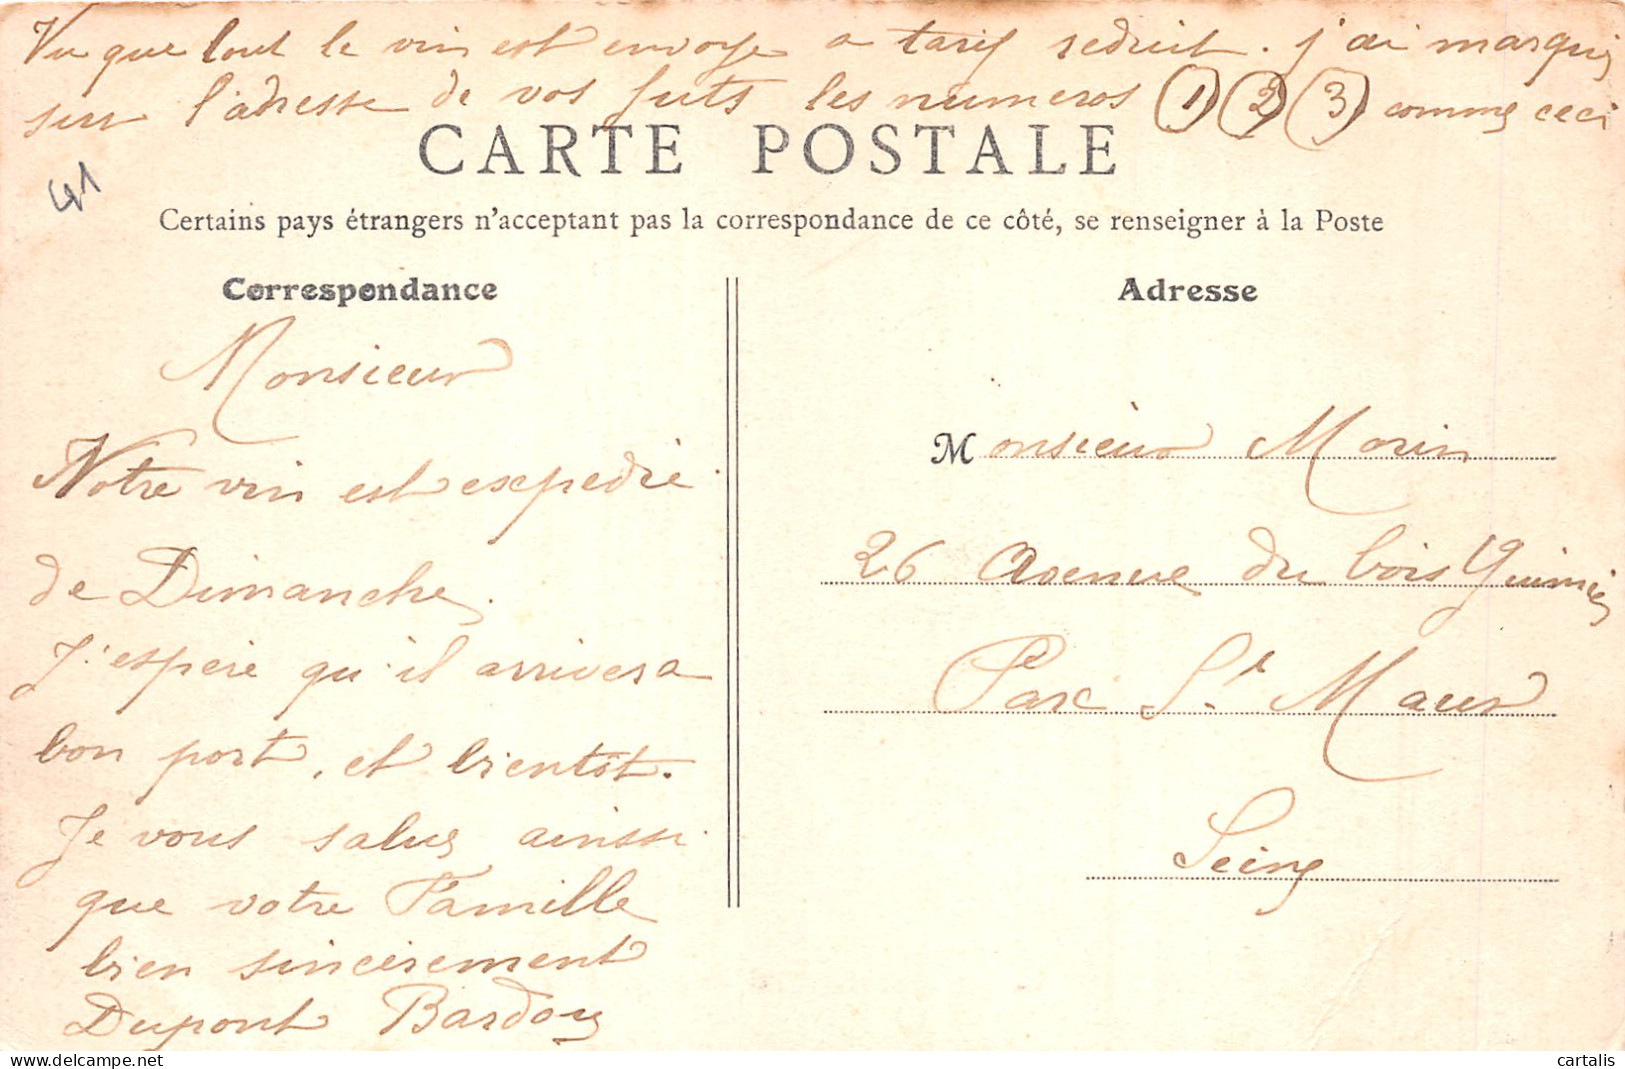 Vu que tout le vin est envoye a tarif reduit. j'ai marqué
sur l'adresse de vos futs les numeros 1 2 3 comme ceci
CARTE POSTALE
41
Certains pays étrangers n'acceptant pas la correspondance de ce côté, se renseigner à la Poste
Correspondance
Adresse
Monsieur
Notre vin est expedié
de Dimanche.
J'espere qu'il arrivera
bon port, et bientot.
Je vous salue ainsi
que votre Famille
bien sincerement
Dupont Bardou
Monsieur Morin
26 Avenue du bois Guimier
Parc St Maur
Seine
cartalis